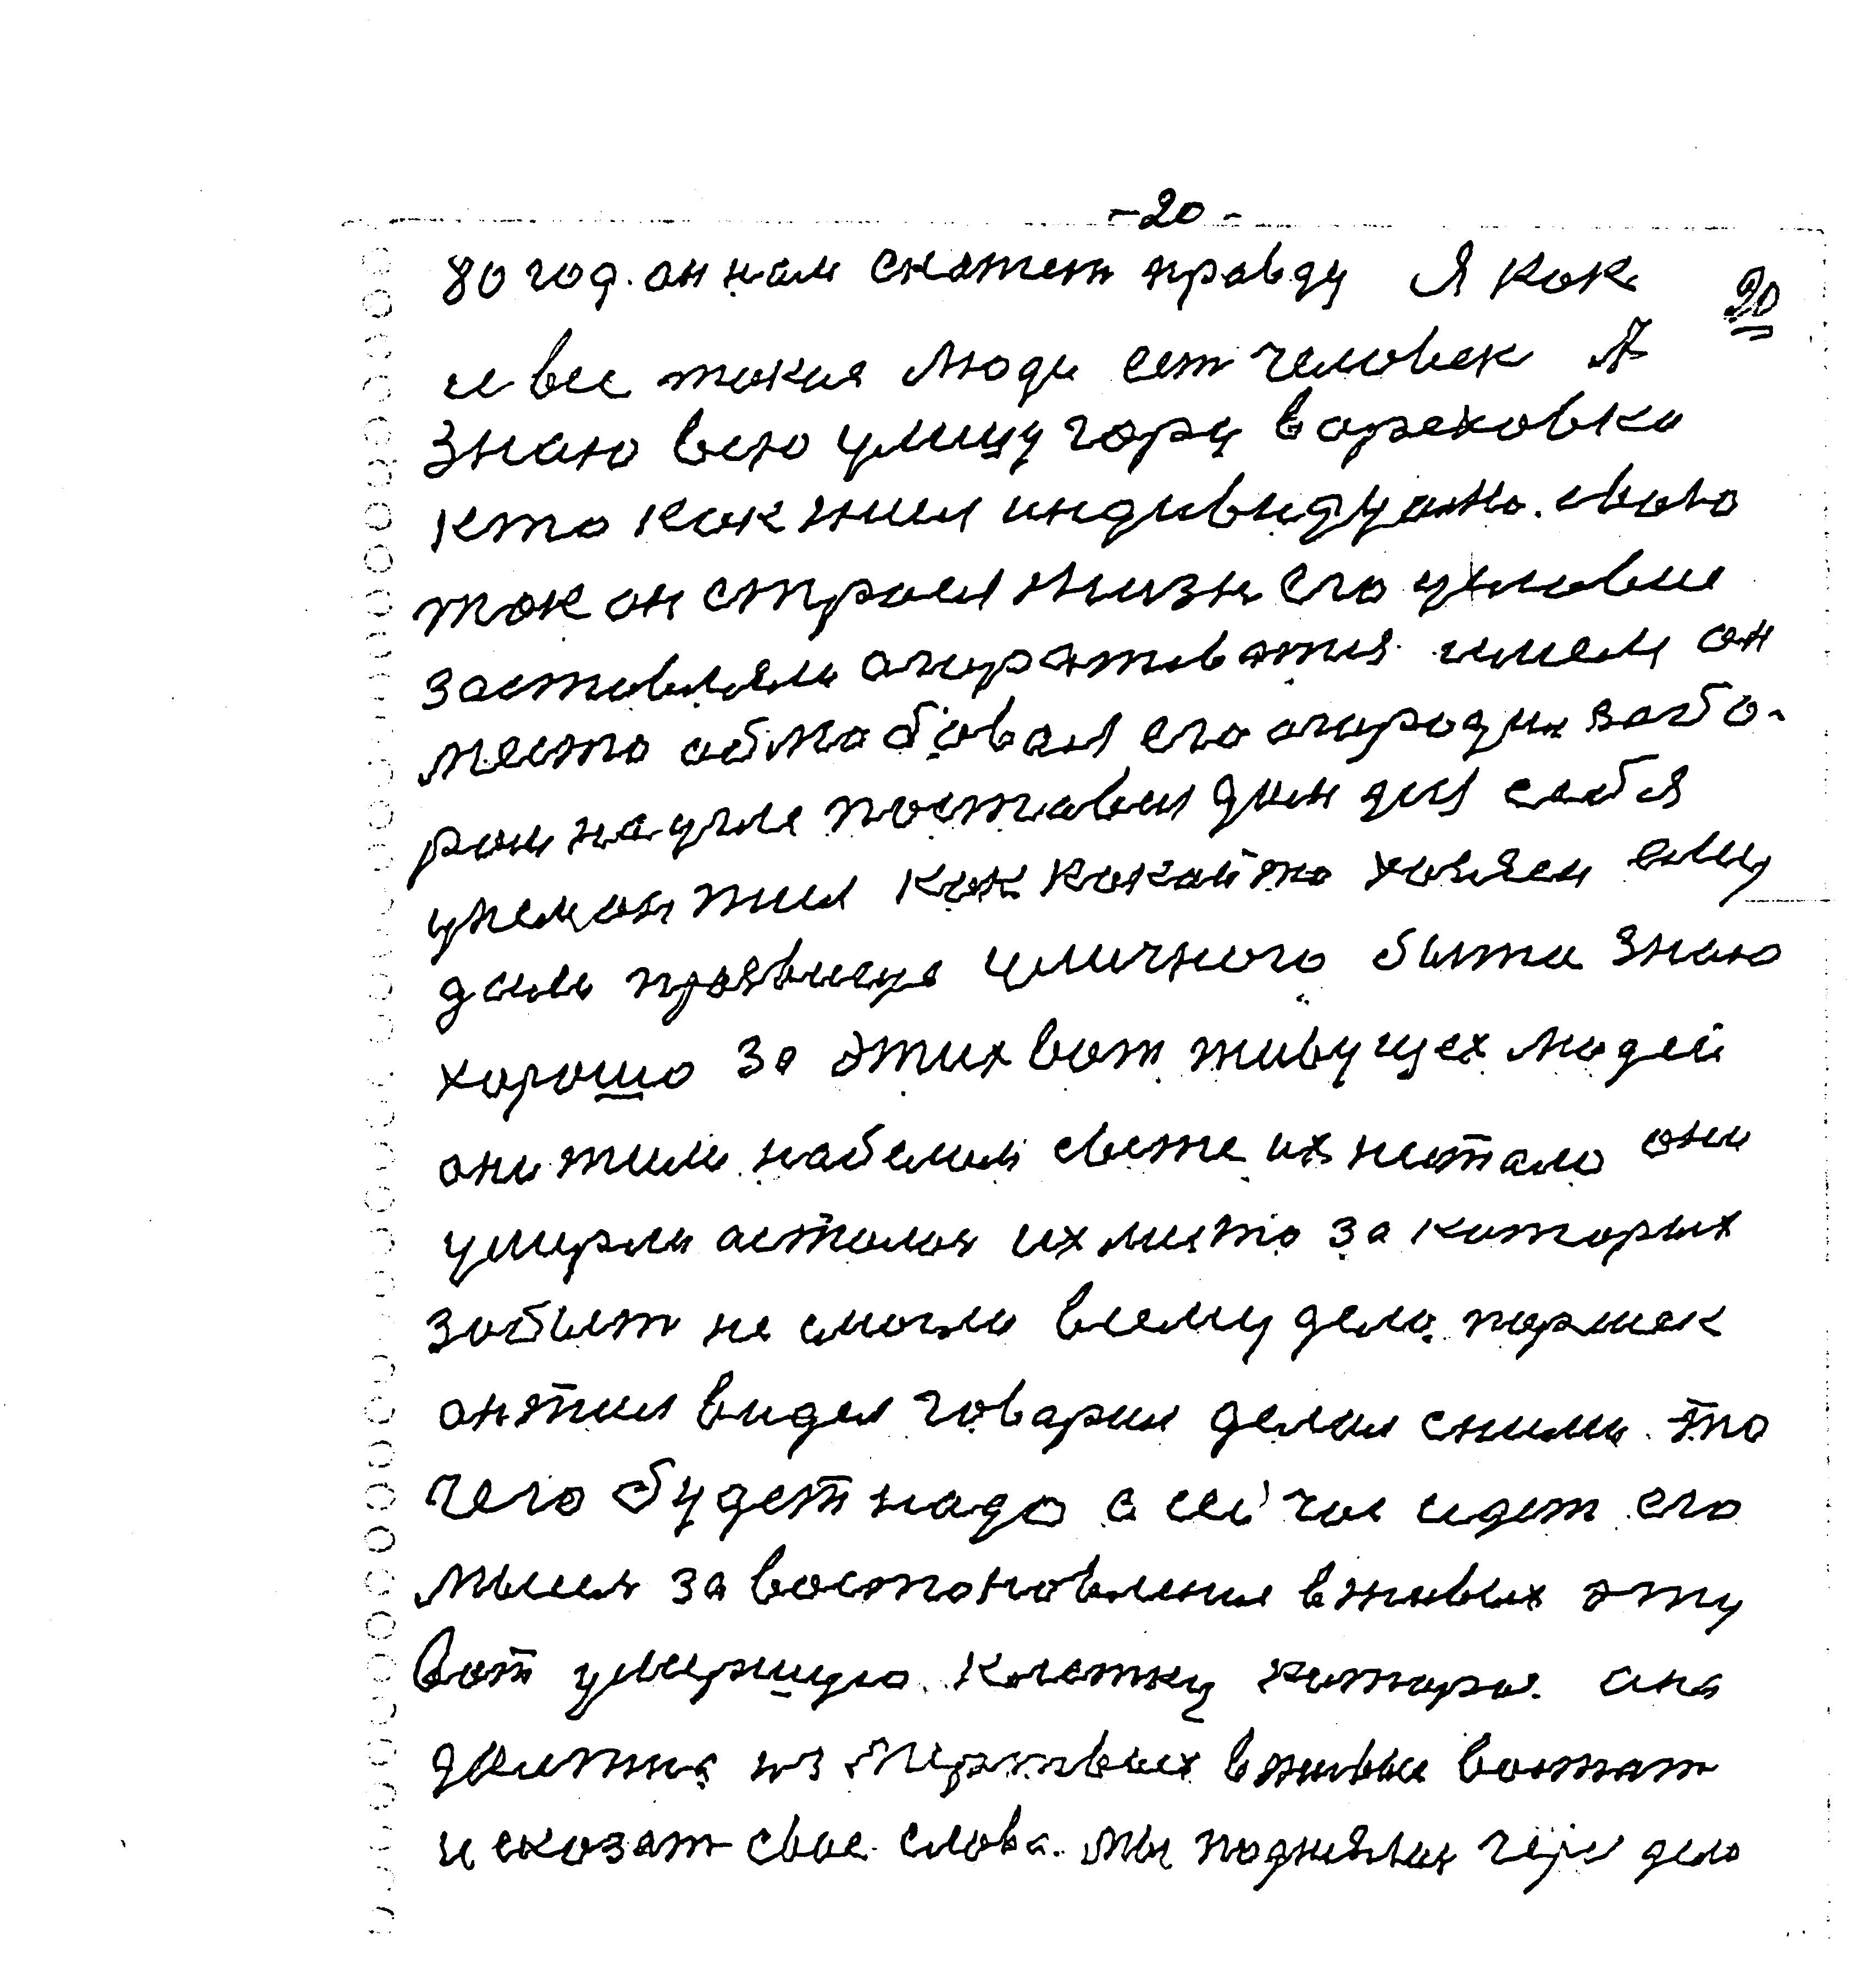 -20-
80 год. он нам скажет правду Я как
20
и все такия люди ест человек Я
знаю всю улицу гору в ореховки
кто как жил индивидуално. свою
так он строел жизн его условие
заставляли огораживатся имел он
место облюбовал его огородил забо-
ром на угле поставил дом для себя
у нем он жил как какойто хозяен ему
дали прозвище уличного быта знаю
хорошо за этих вот живущех людей
они жили на белом свете их нестало они
умирли осталос их место за которых
забыт не смогли всему дело паршек
он жил видел говарил делал сними то
чего будет надо а сей час идет его
мысля за востоновления в живых эту
вот умершую клетку которы. она
должна из мертвых в живые востат
и сказат свое слова. мы поднялис чере дело